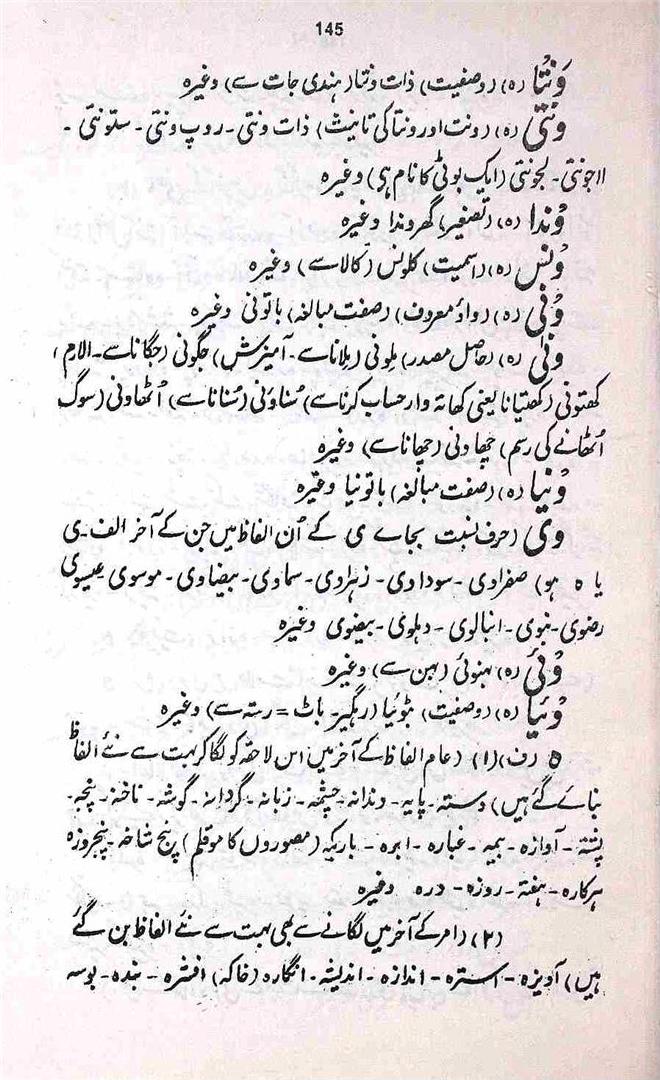 145
وَنتا (ہ) (وصفیت) ذات ونتا (ہندی جات سے) وغیرہ
ونتی (ہ) (ونت اور ونتا کی تانیث) ذات ونتی۔ روپ ونتی۔ ستونتی۔
لاجونتی۔ لجونتی (ایک بوٹی کا نام ہی) وغیرہ
وُندا (ہ) (تصغیر) گھروندا وغیرہ
وُنس (ہ) (اسمیت) کلونس (کالا سے) وغیرہ
وُنی (ہ) (واؤ معروف) (صفت مبالغہ) باتونی وغیرہ
ونی (ہ) (حاصل مصدر) ملونی (ملانا سے۔ آمیزش) جگونی (جگانا سے۔ الارم)
کھتونی (کھتیانا یعنی کھاتہ وار حساب کرنا سے) سُناؤنی (سُنانا سے) اُٹھاونی (سوگ
اُٹھانے کی رسم) چھاونی (چھانا سے) وغیرہ
وُنیا (ہ) (صفت مبالغہ) باتونیا وغیرہ
وی (حرف نسبت بجاے ی کے اُن الفاظ میں جن کے آخر الف۔ ی
یا ہ ہو) صفراوی۔ سوداوی۔ زہراوی۔ سماوی۔ بیضاوی۔ موسوی عیسوی
رضوی۔ نبوی۔ انبالوی۔ دہلوی۔ بیضوی وغیرہ
وُئی (ہ) بہنوئی (بہن سے) وغیرہ
وُیّا (ہ) (وصفیت) بٹویا (رہگیر۔ باٹ = رستہ سے) وغیرہ
ہ (ف) (۱) (عام الفاظ کے آخر میں اس لاحقہ کو لگا کر بہت سے نئے الفاظ
بنائے گئے ہیں) دستہ۔ پایہ۔ دندانہ۔ چشمہ۔ زبانہ۔ گردانہ۔ گوشہ۔ ناخنہ۔ پنجہ۔
پشتہ۔ آوازہ۔ نیمہ۔ غبارہ۔ ابرہ۔ باریکہ (مصوروں کا موقلم) پنج شاخہ۔ پنجروزہ
ہرکارہ۔ ہفتہ۔ روزہ۔ درہ وغیرہ
(۲) (امر کے آخر میں لگانے سے بھی بہت سے نئے الفاظ بن گئے
ہیں) آویزہ۔ استرہ۔ اندازہ۔ اندیشہ۔ انگارہ (خاکہ) افشرہ۔ بندہ۔ بوسہ